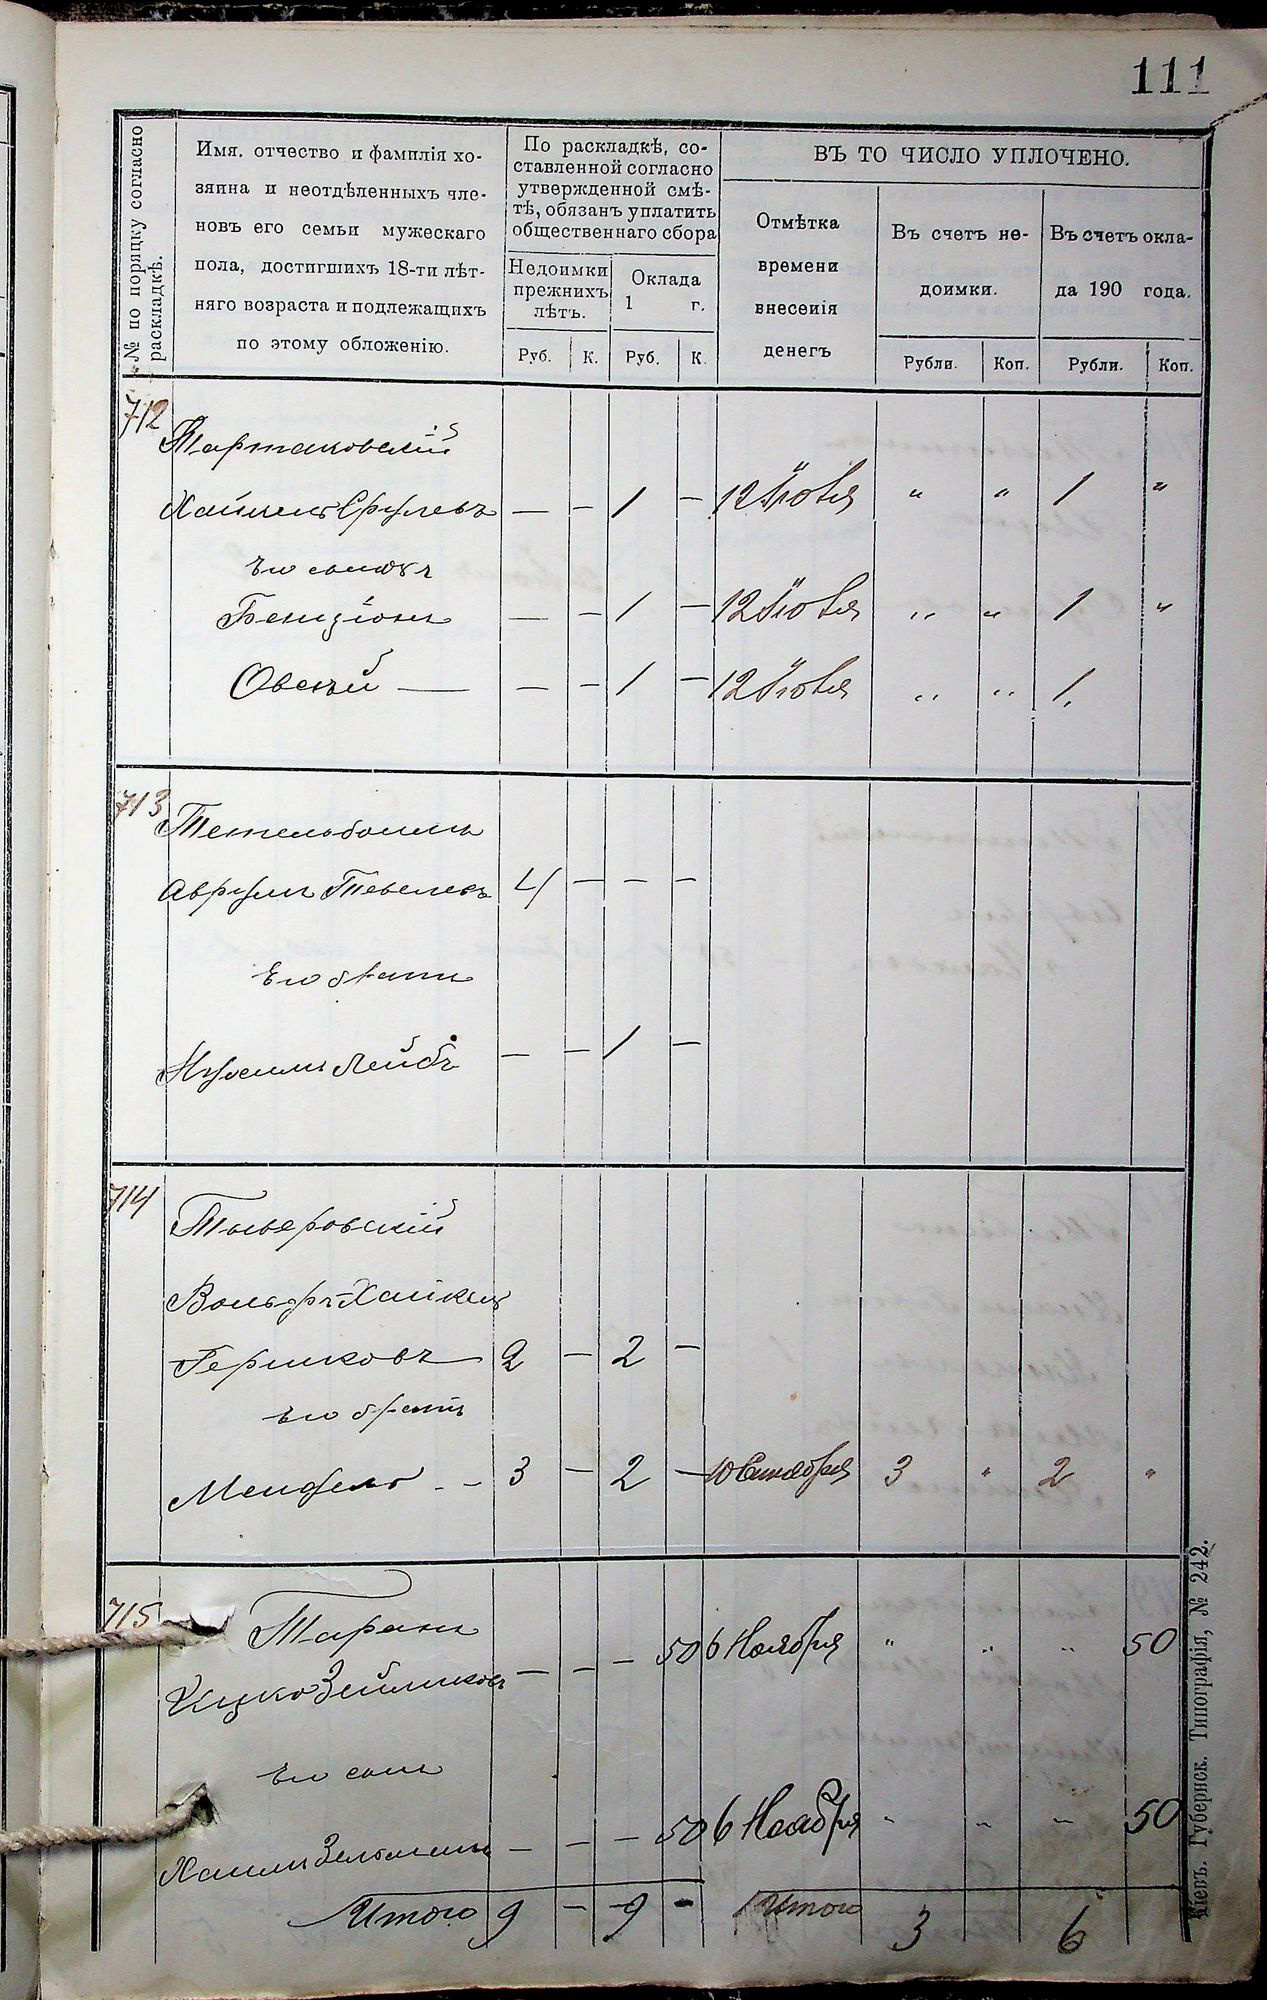 111
№ по порядку согласно
раскладкѣ.
Имя, отчество и фамилія хо-
зяина и неотдѣленныхъ чле-
новъ его семьи мужескаго
пола, достигшихъ 18-ти лѣт-
няго возраста и подлежащихъ
по этому обложенію.
По раскладкѣ, со-
ставленной согласно
утвержденной смѣ-
тѣ, обязанъ уплатить
общественнаго сбора
Недоимки
прежнихъ
лѣтъ.
Оклада
1 г.
Руб. К. Руб. К.
ВЪ ТО ЧИСЛО УПЛОЧЕНО.
Отмѣтка
времени
внесенія
денегъ
Въ счетъ не-
доимки.
Въ счетъ окла-
да 190 года.
Рубли. Коп. Рубли. Коп.
712
Тартаковскій
Хаимель Срулевъ — — 1 — 12 Іюля " " 1 "
Его сыновья
Бенціонъ — — 1 — 12 Іюля " " 1 "
Овсей — — — 1 — 12 Іюля " " 1
713
Тетельбоимъ
Аврумъ Тевелевъ 4 — — —
Его братъ
Нусимъ Лейбъ — — 1 —
714
Тыверовскій
Вольфъ-Хаикель
Гершковъ 2 — 2 —
Его братъ
Мендель 3 — 2 — 10 Сентября 3 " 2 "
715
Таранъ
Ицко Зейликовъ — — — 50 6 Ноября " " " 50
Его сынъ
Хаимъ Зельманъ — — — 50 6 Ноября " " " 50
Итого 9 — 9 — Итого 3 6
Кіевъ. Губернск. Типографія, № 242.